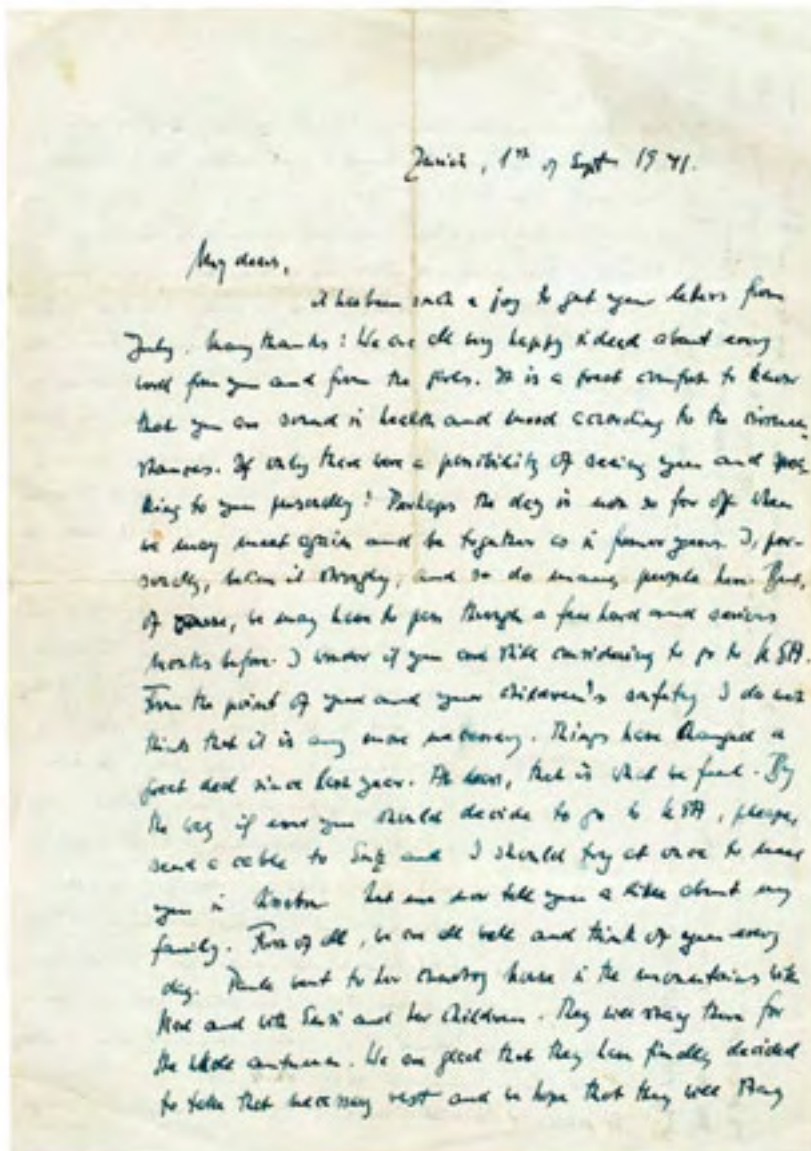 Zurich, 1st of Sept 1941.
My dears,
it has been such a joy to get your letters from
July. Many thanks! We are all very happy indeed about every
word from you and from the girls. It is a great comfort to know
that you are sound in health and mood according to the circum-
stances. If only there were a possibility of seeing you and
king to you personally! Perhaps the day is not so far off when
we may meet again and be together as in former years. I, per-
sonally, believe it strongly, and so do many people here. But,
of course, we may have to pass through a few hard and serious
months before. I wonder if you are still considering to go to USA.
From the point of your and your children's safety I do not
think that it is any more necessary. Things have changed a
great deal since last year. At least, that is what we feel. By
the way if ever you should decide to go to USA, please,
send a cable to and I should try at once to meet
you in Let me now tell you a little about my
family. First of all, we are all well and think of you every
day. went to her country house in the mountains with
and with Susi and her children. They will stay there for
the whole autumn. We are glad that they have finally decided
to take that necessary rest and we hope that they will stay